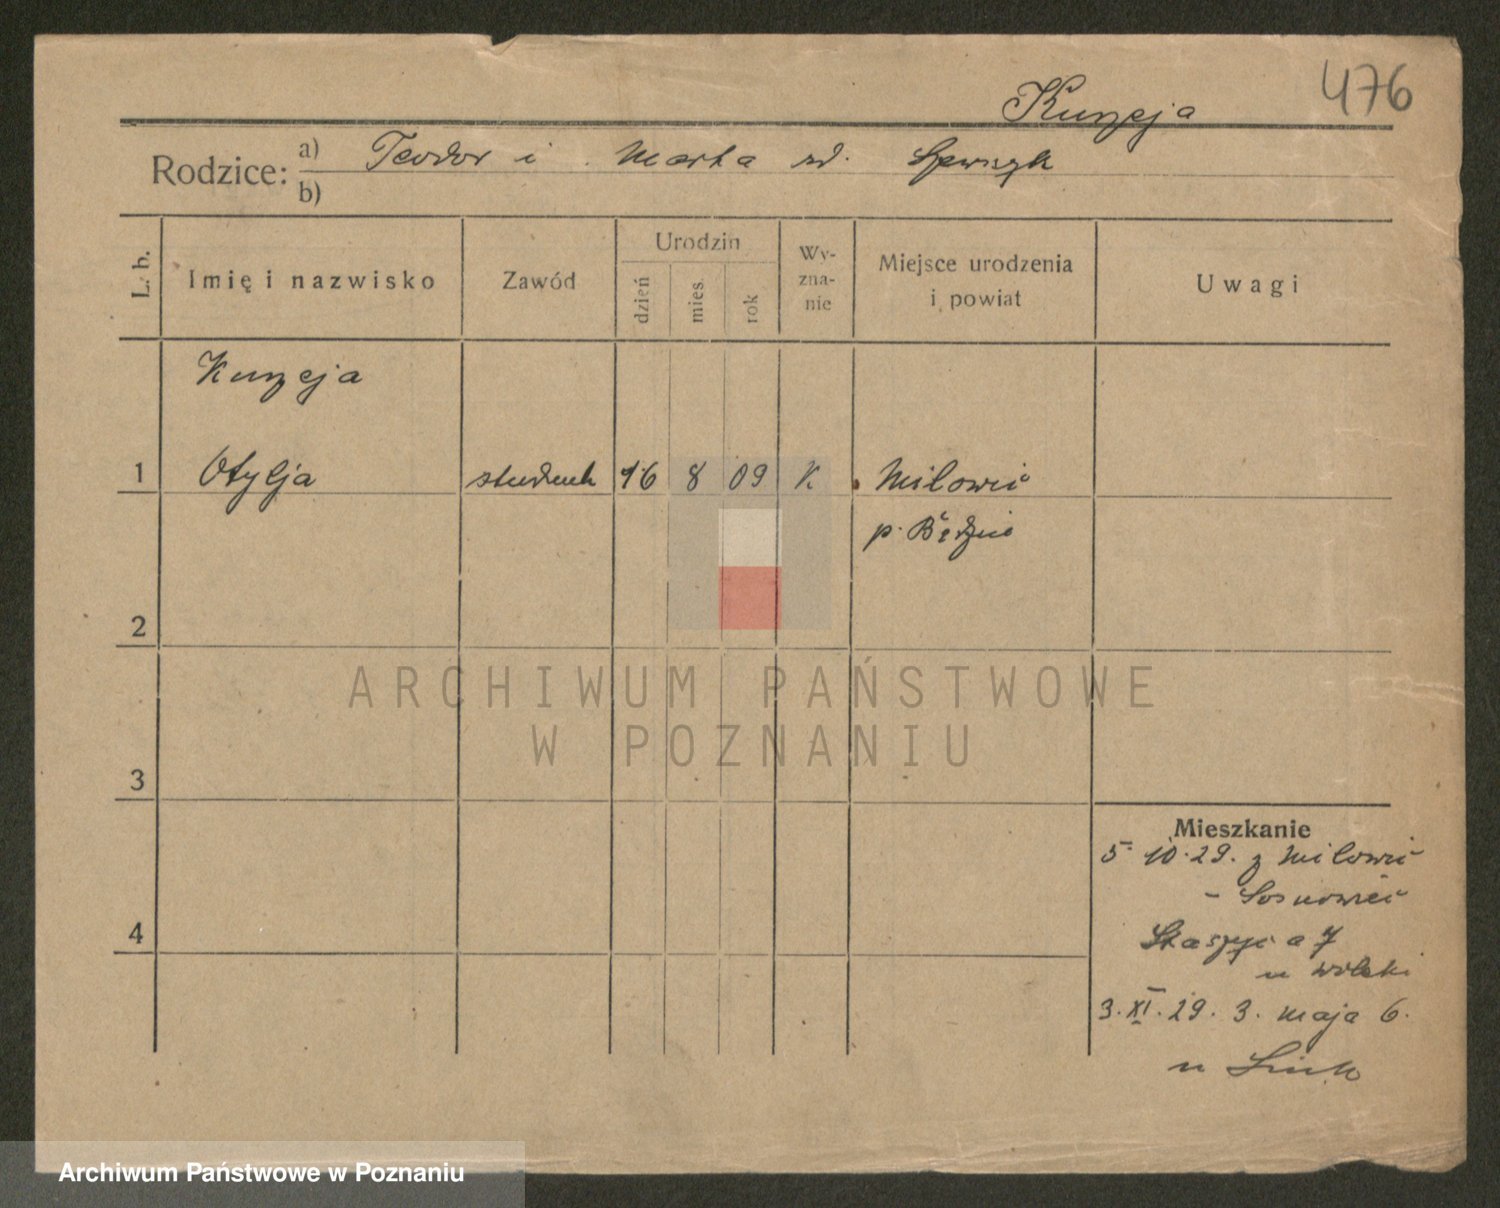 476
Kuzeja
Rodzice: a) Teodor i Marta zd.
b)
L. b. Imię i nazwisko Zawód Urodzin dzień mies. rok Wy-zna-nie Miejsce urodzenia i powiat Uwagi
Kuzeja
1 Otylja student 16 8 09 K Milowic
p. Będzin
2
3
4
Mieszkanie
5. 10. 29. z Milowic
- Sosnowiec
Staszyca 7
u Wolski
3. XI. 29. 3. maja 6.
u
ARCHIWUM PAŃSTWOWE
W POZNANIU
Archiwum Państwowe w Poznaniu